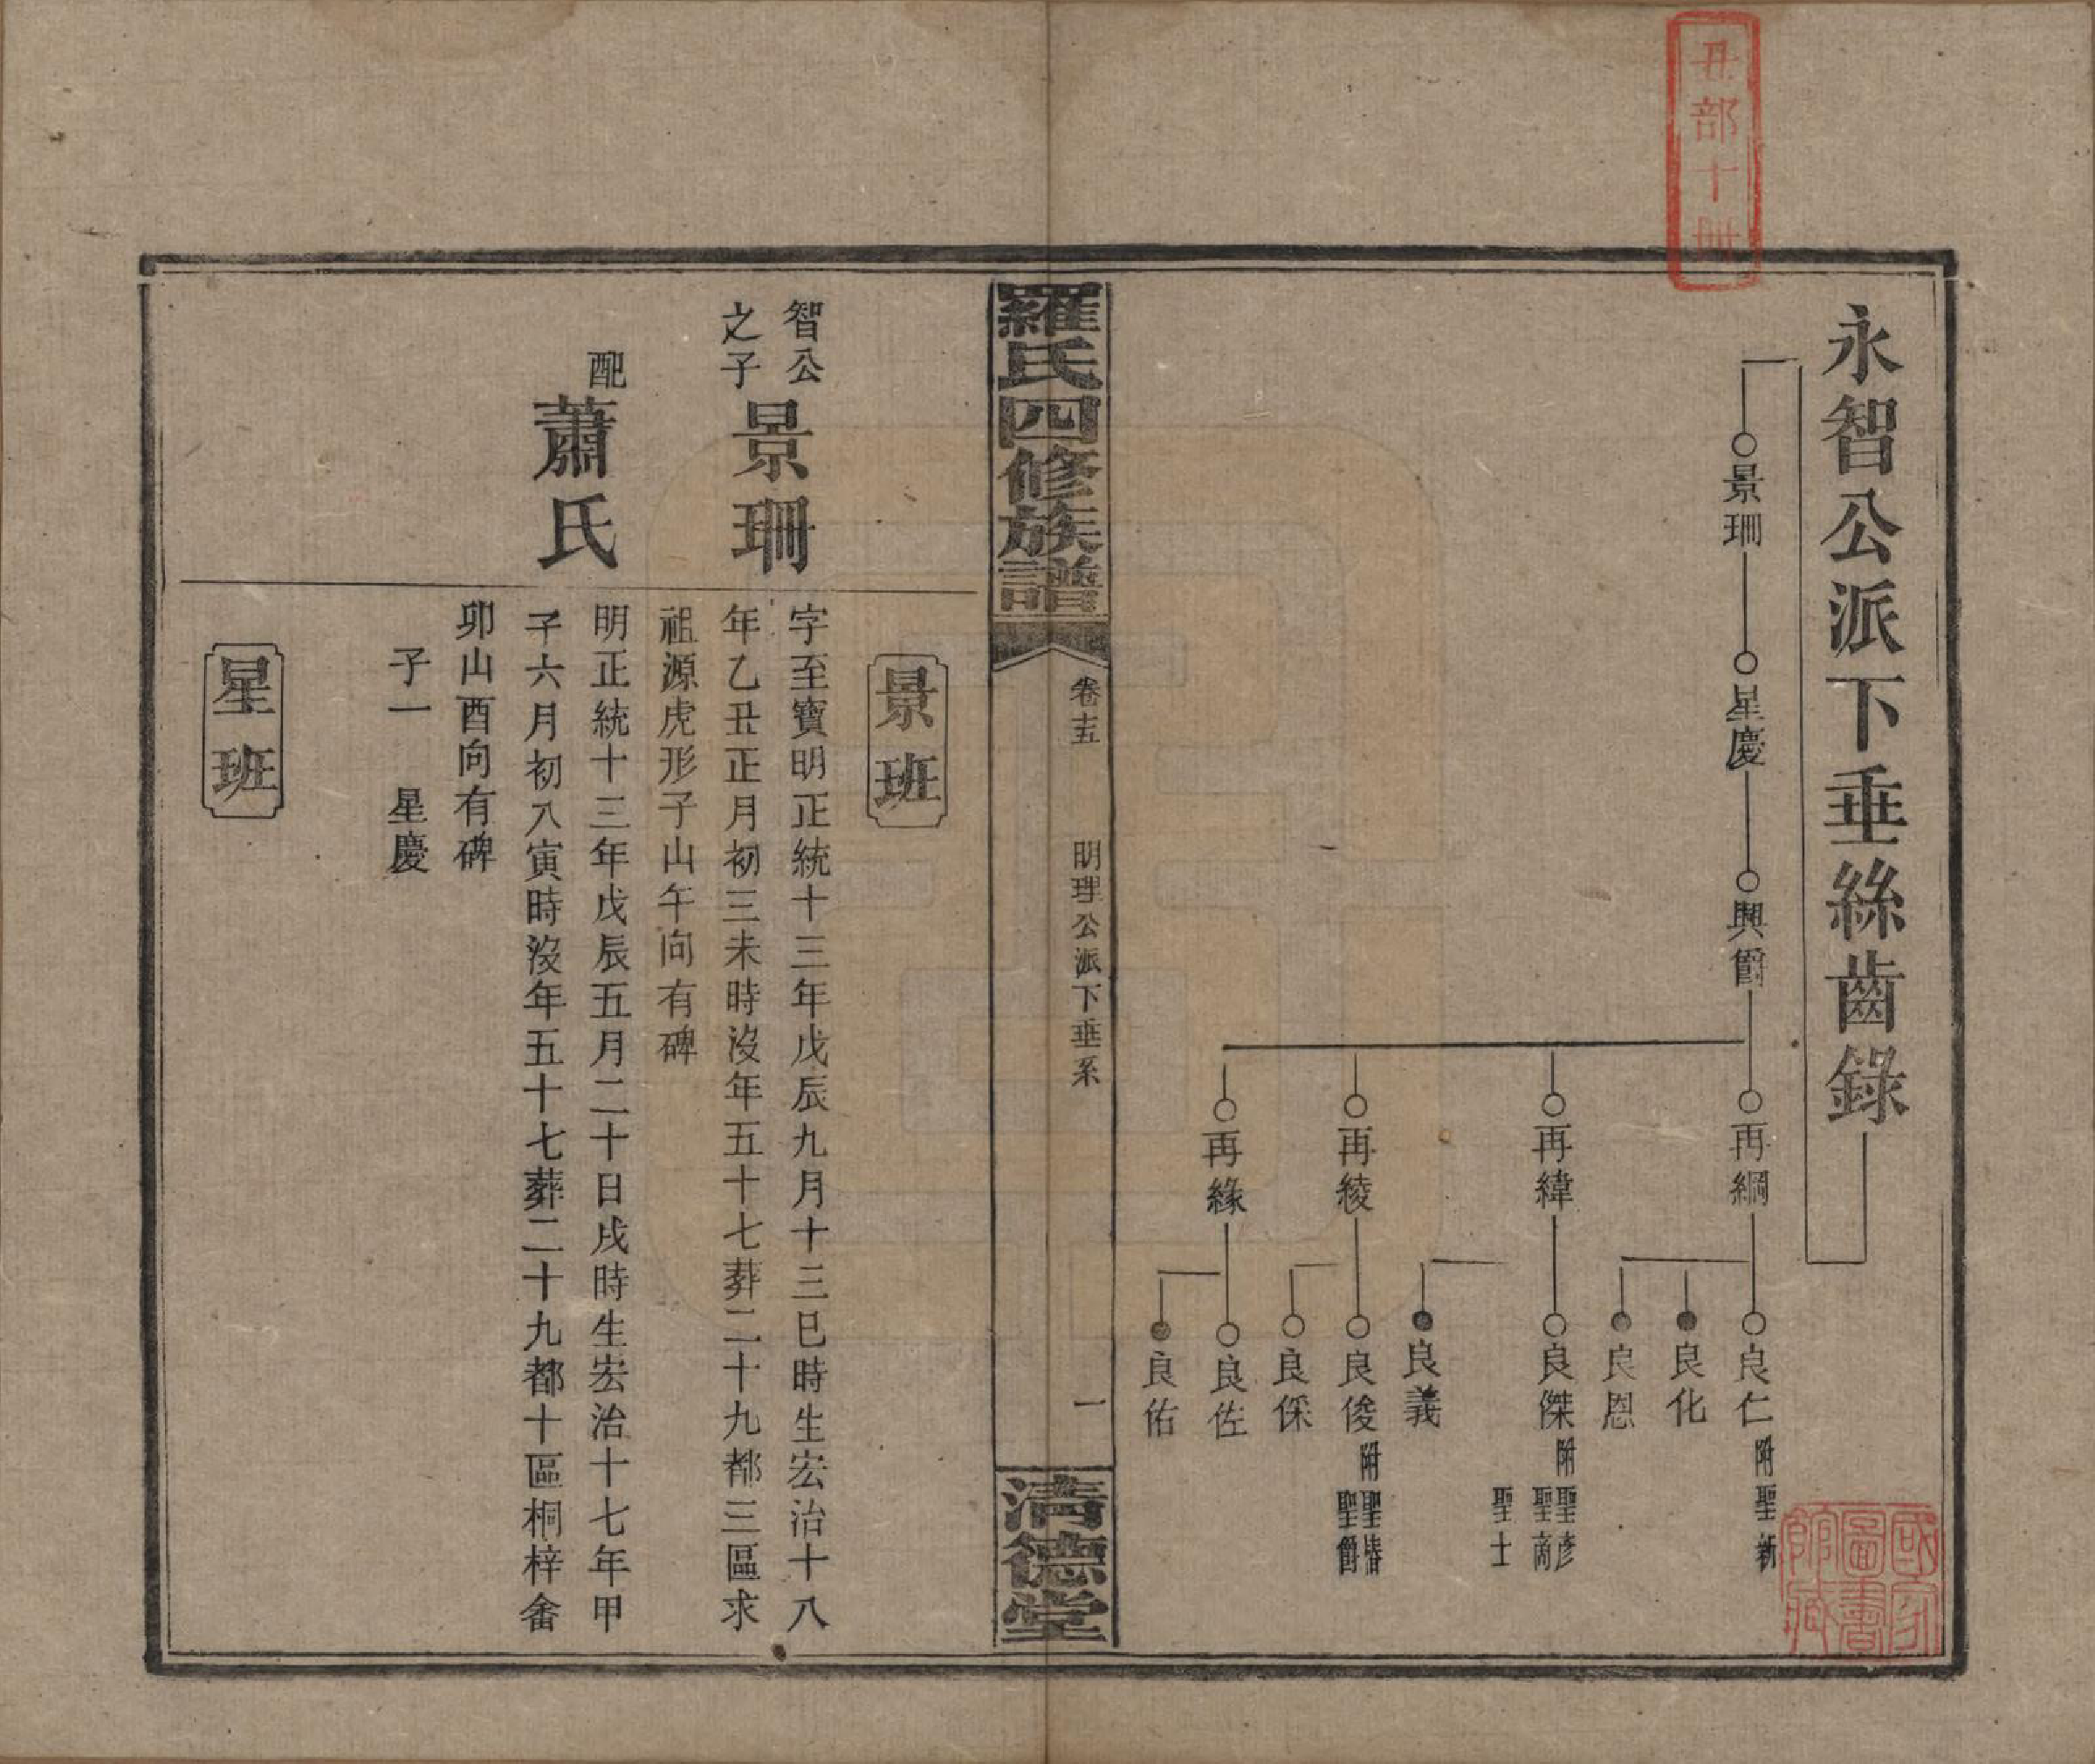 丑部十冊
永智公派下垂絲齒錄
景珊
星慶
興爵
再綱
再緯
再綾
再緣
良仁 附聖新
良化
良恩
良傑 附聖彥 聖商 聖士
良義
良俊 附聖椿 聖爵
良倸
良佐
良佑
國家圖書館藏
羅氏四修族譜
卷十五
明理公派下垂系
一
清德堂
景班
智公之子
景珊
字至寶明正統十三年戊辰九月十三巳時生宏治十八
年乙丑正月初三未時沒年五十七葬二十九都三區求
祖源虎形子山午向有碑
配
蕭氏
明正統十三年戊辰五月二十日戌時生宏治十七年甲
子六月初八寅時沒年五十七葬二十九都十區桐梓畬
卯山酉向有碑
子一 星慶
星班